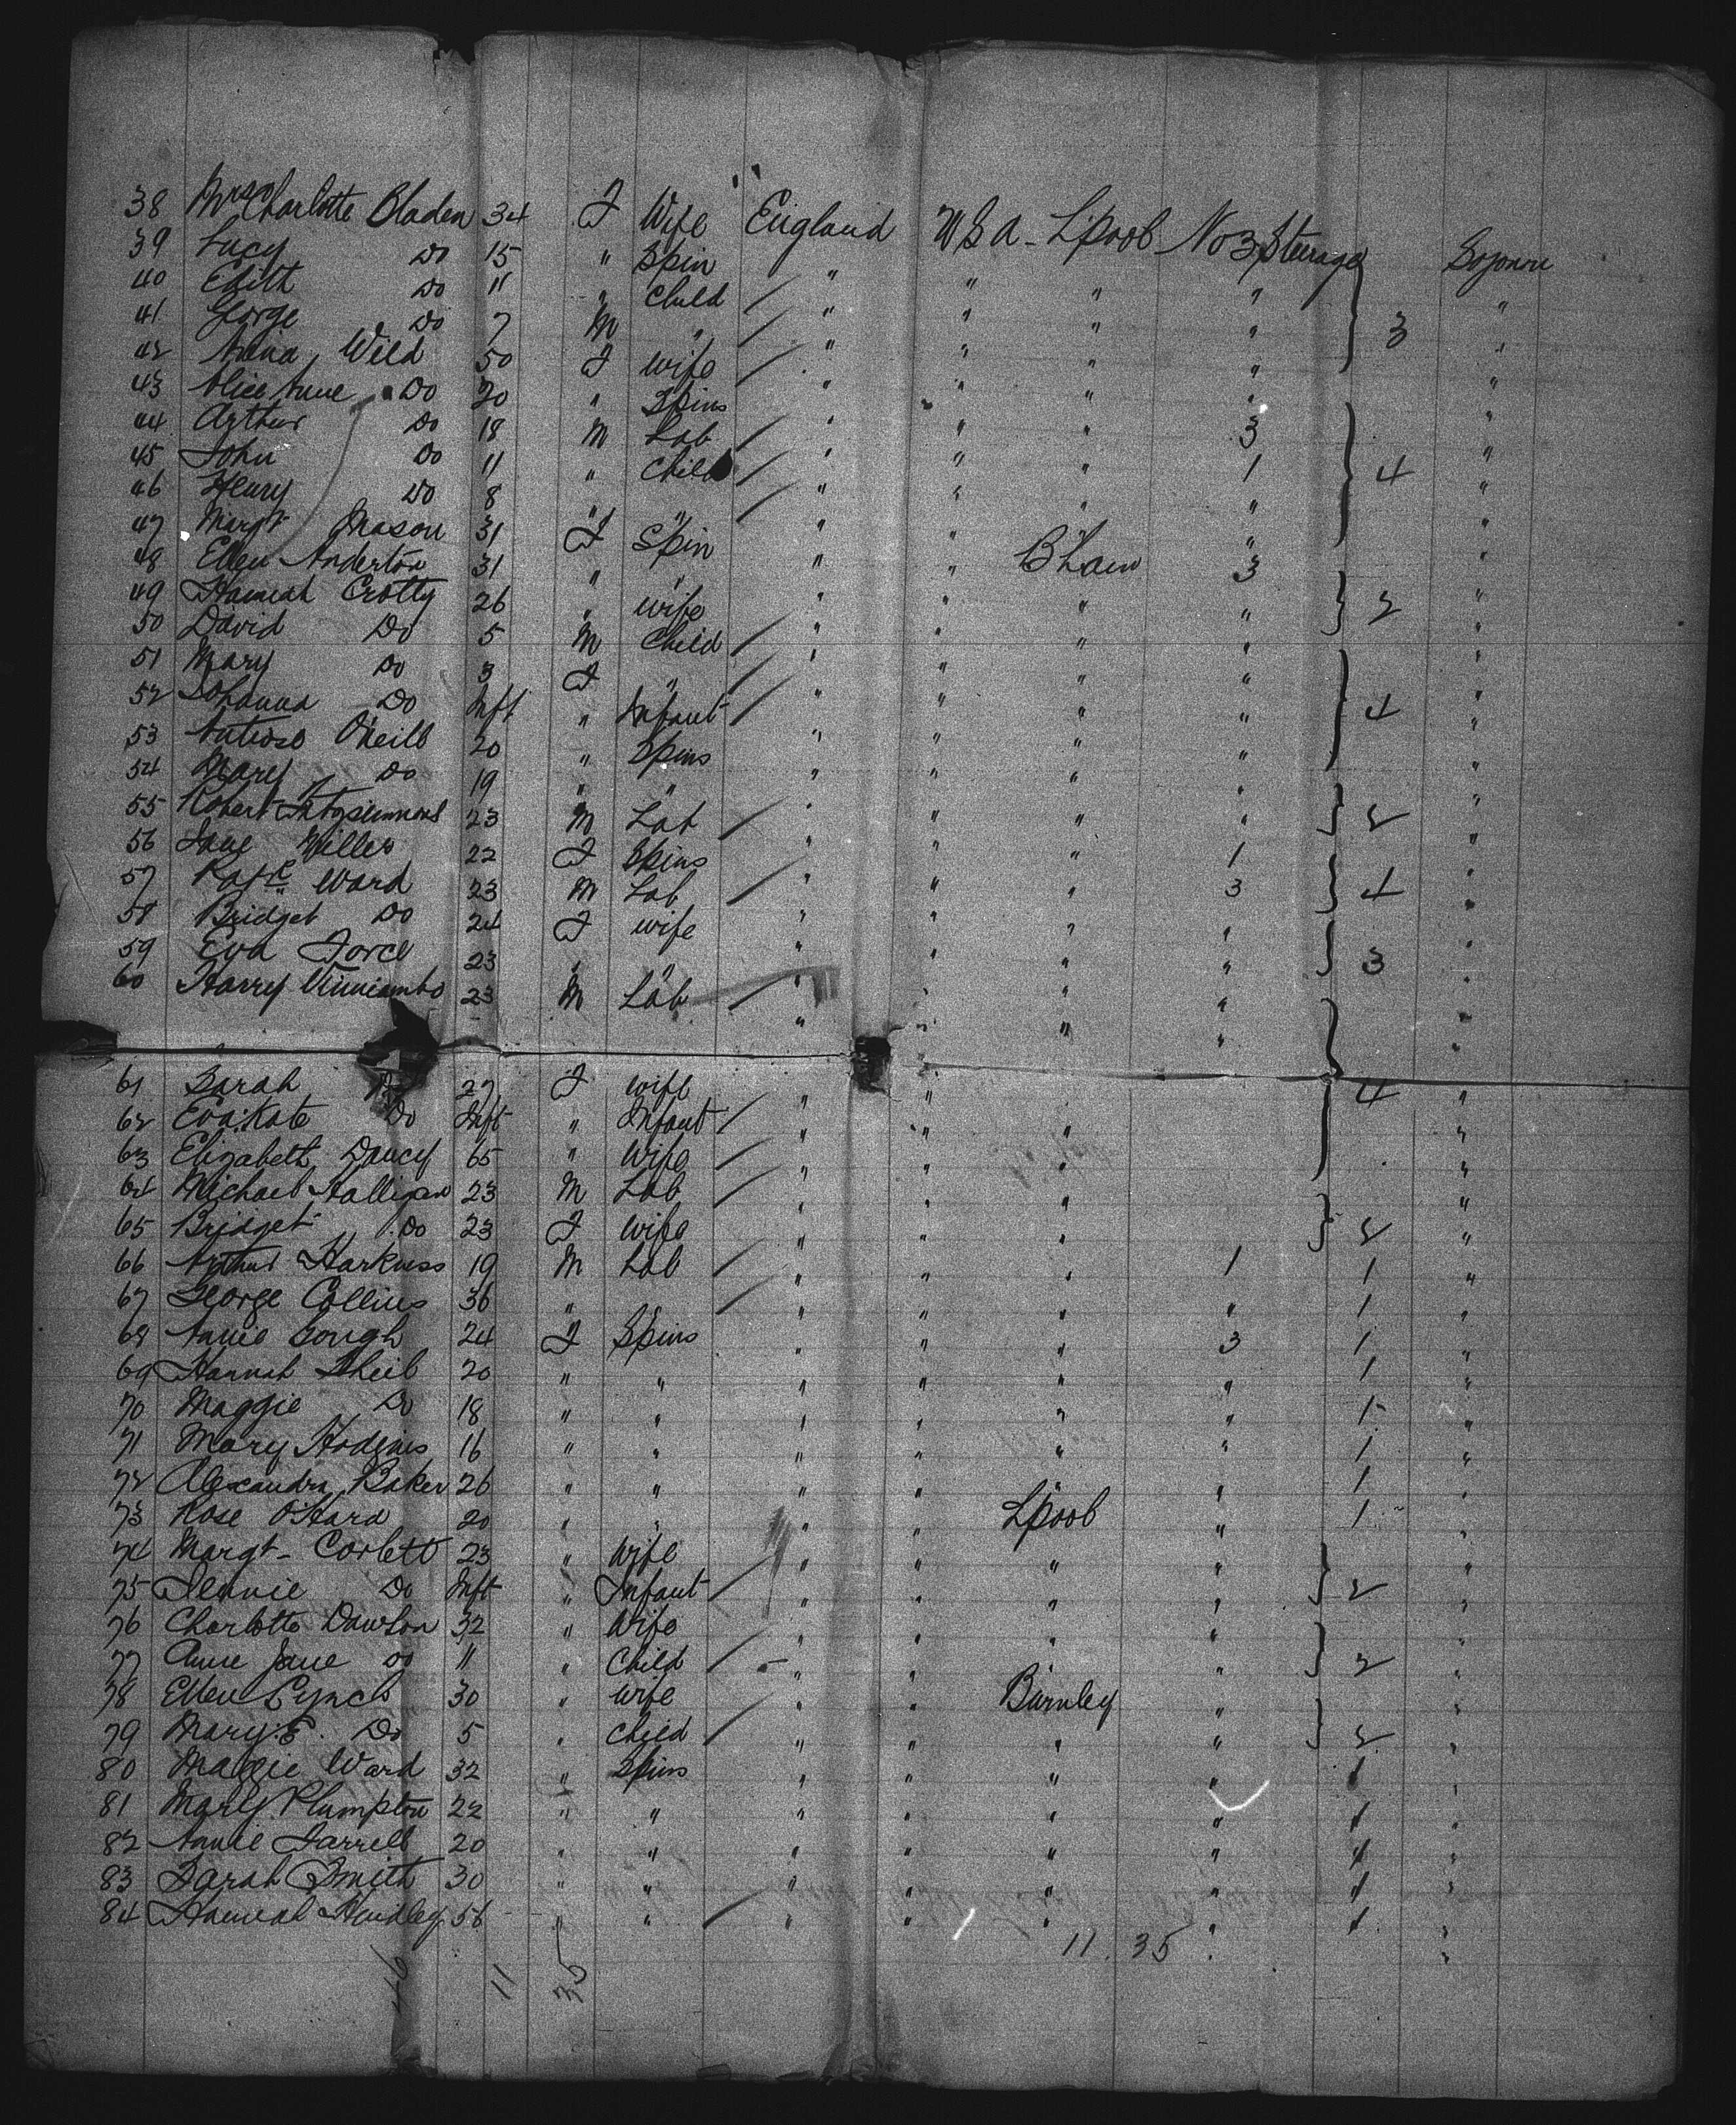 38 Mrs Charlotte Bladen 34 F Wife England U S A - L'pool No 3 Steerage Sojourn
39 Lucy Do 15 " Spin " " " " "
40 Edith Do 11 " Child " " " " "
41 George Do 7 M " " " " " 3 "
42 Anna Wild 50 F Wife " " " " "
43 Alice Anne Do 20 " Spins " " " " "
44 Arthur Do 18 M Lab " " " 3 "
45 John Do 11 " Child " " " 1 4 "
46 Henry Do 8 " " " " " " "
47 Margt Mason 31 F Spin " " " " "
48 Ellen Anderton 31 " " " " B'ham 3 "
49 Hannah Crotty 26 " Wife " " " " 2 "
50 David Do 5 M Child " " " " "
51 Mary Do 3 F " " " " " "
52 Johanna Do Inft " Infant " " " " 4 "
53 O'Neill 20 " Spins " " " " "
54 Mary Do 19 " " " " " " "
55 Robert Fitzsimmons 23 M Lab " " " " 2 "
56 Jane Miller 22 F Spins " " " 1 "
57 Patk Ward 23 M Lab " " " 3 4 "
58 Bridget Do 24 F Wife " " " " "
59 Eva Force 23 " " " " " " 3 "
60 Harry 23 M Lab " " " " "
61 Sarah Do 27 F Wife " " 4 "
62 Eva Kate Do Inft " Infant " " " "
63 Elizabeth Dancy 65 " Wife " " " "
64 Michael Halligan 23 M Lab " " " "
65 Bridget Do 23 F Wife " " " 2 "
66 Arthur Harkness 19 M Lab " " " 1 1 "
67 George Collins 36 " " " " " " 1 "
68 Annie Gough 24 F Spins " " " 3 1 "
69 Hannah Sheil 20 " " " " " " 1 "
70 Maggie Do 18 " " " " " " 1 "
71 Mary Hodgins 16 " " " " " " 1 "
72 Alexandra Baker 26 " " " " " " 1 "
73 Rose O'Hara 20 " " " " L'pool " 1 "
74 Margt - Corbett 23 " Wife " " " " "
75 Jennie Do Inft " Infant " " " " 2 "
76 Charlotte Dawson 32 " Wife " " " " "
77 Anne Jane Do 11 " Child " " " " 2 "
78 Ellen Lynch 30 " Wife " " Burnley " "
79 Mary E. Do 5 " Child " " " " 2 "
80 Maggie Ward 32 " Spins " " " " 1 "
81 Mary Plumpton 22 " " " " " " 1 "
82 Annie Farrell 20 " " " " " " 1 "
83 Sarah Smith 30 " " " " " " 1 "
84 Hannah Hindley 56 " " " " " " 1 "
11 . 35
11 35